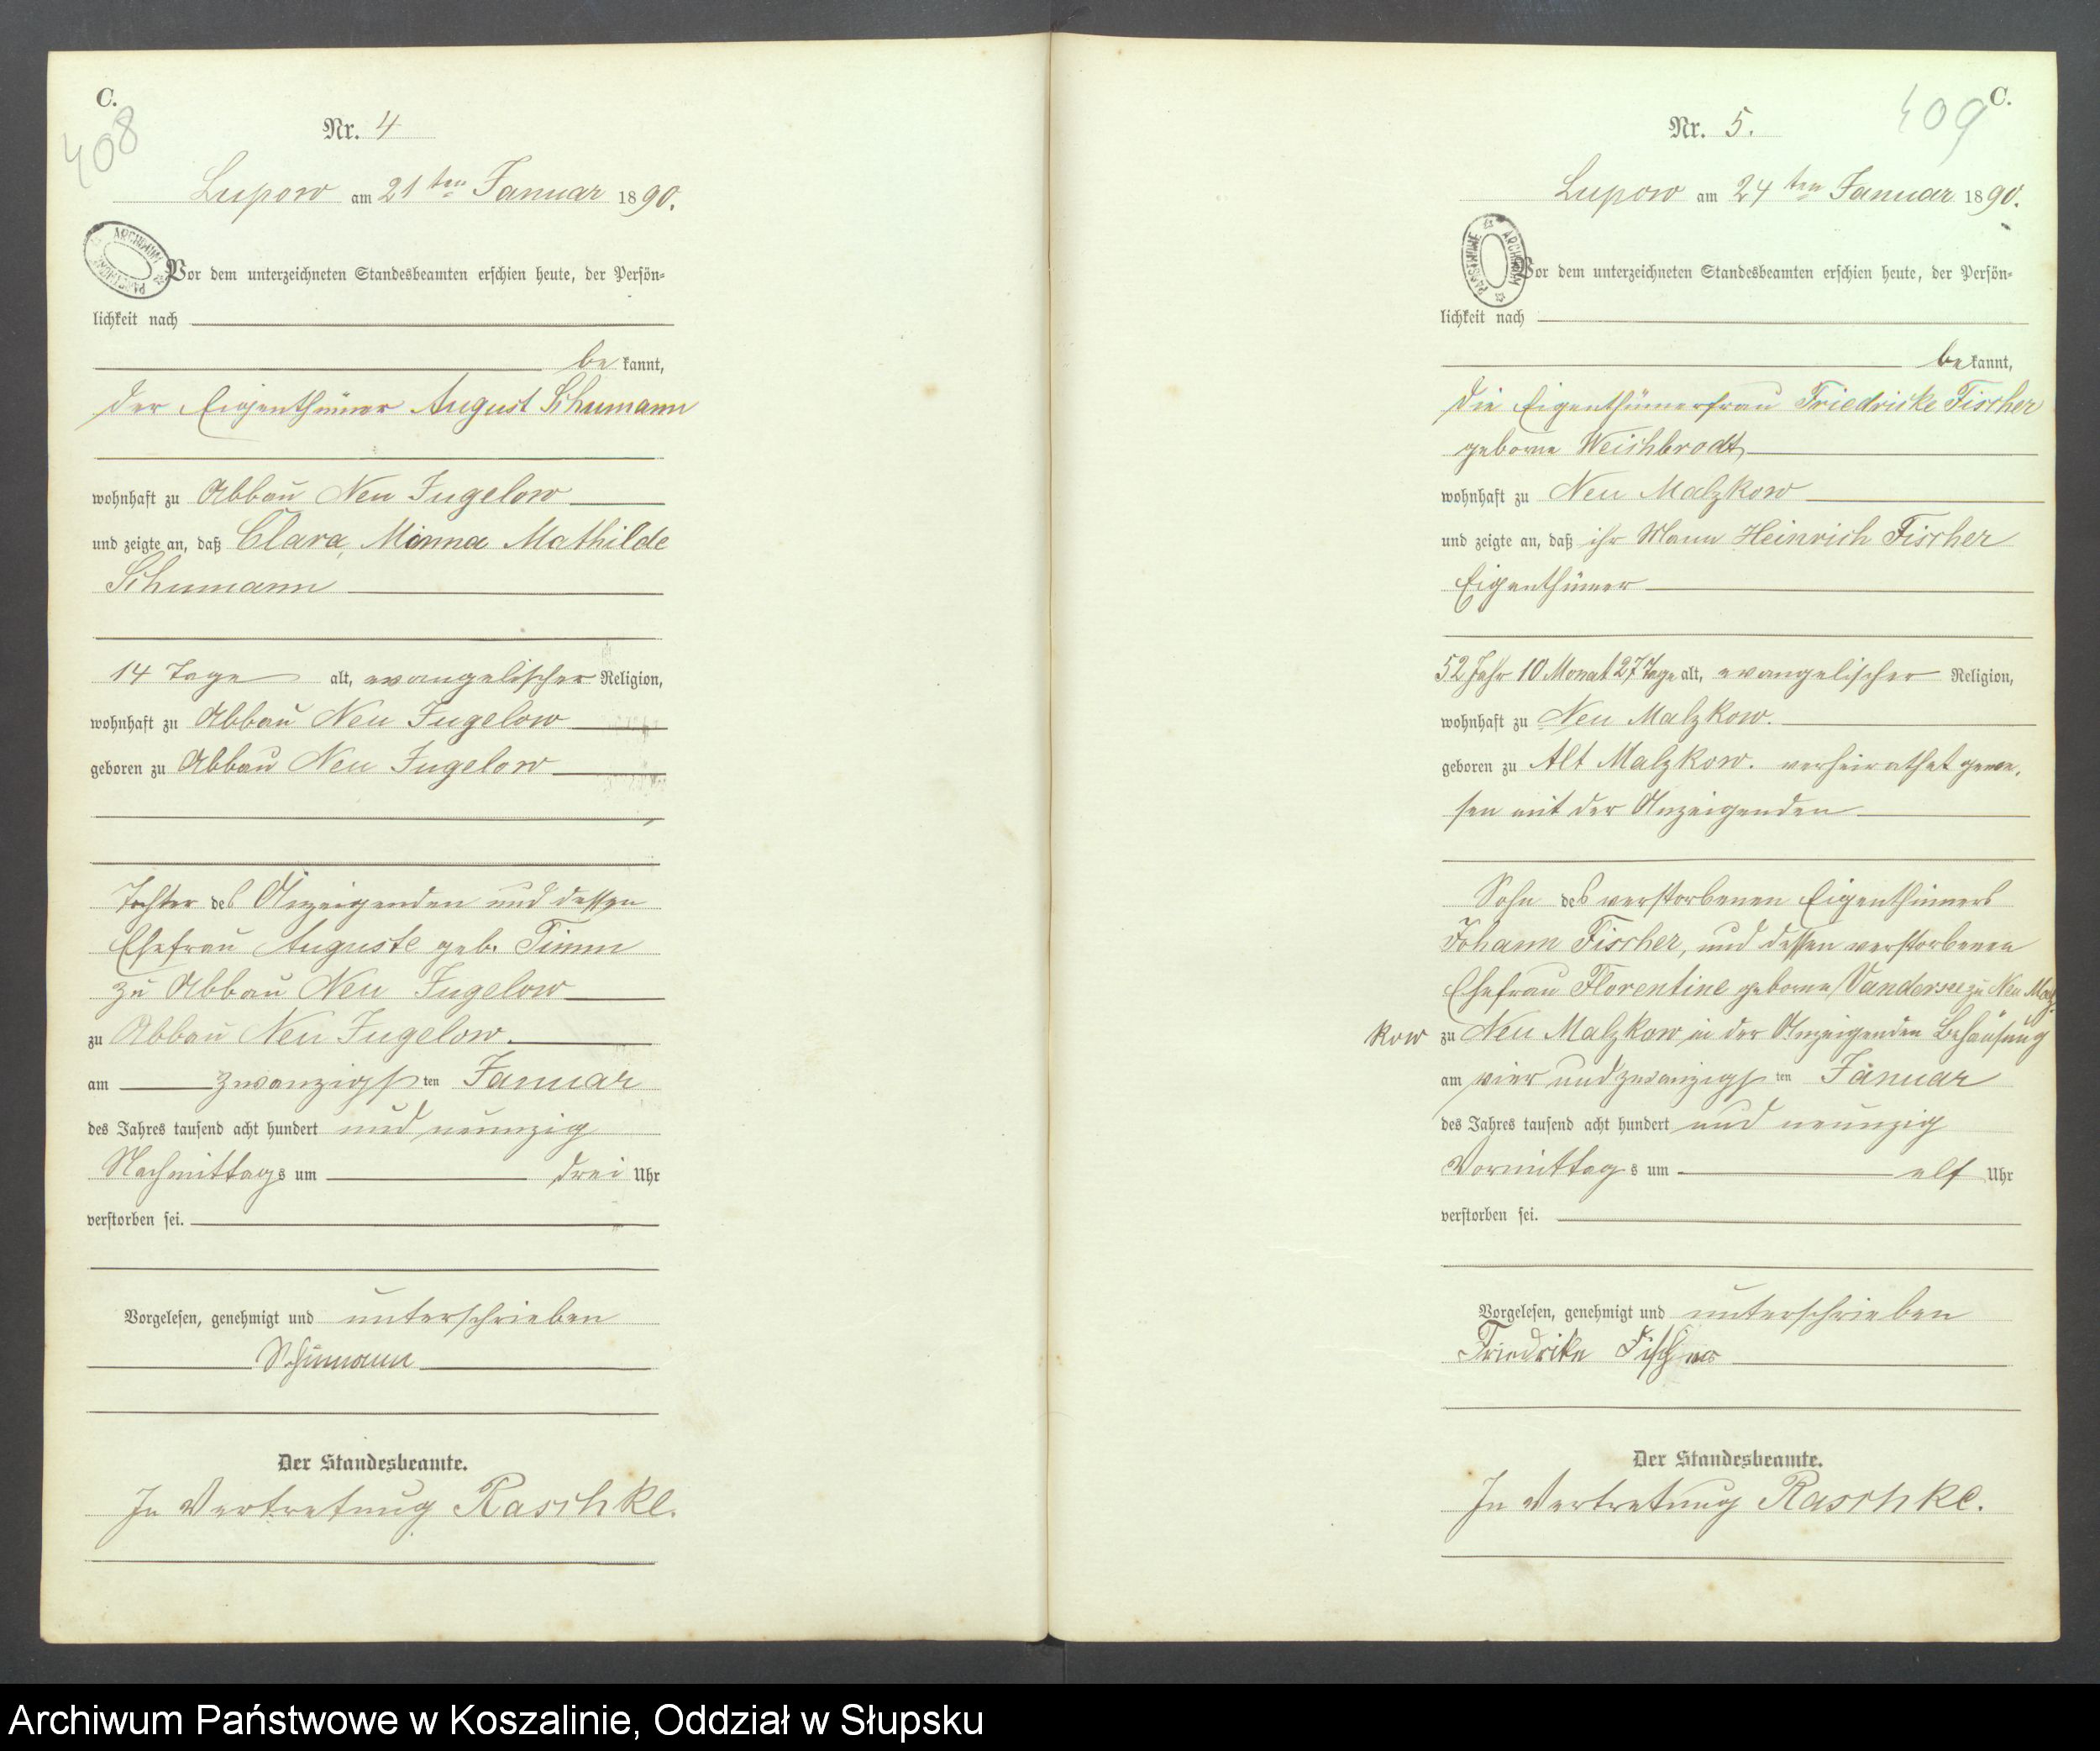 C.
408
Nr. 4
Lupow am 21ten Januar 1890.
ARCHIWUM PAŃSTWOWE
Vor dem unterzeichneten Standesbeamten erschien heute, der Persön=
lichkeit nach
be kannt,
der Eigenthümer August Schumann
wohnhaft zu Abbau Neu Jugelow
und zeigte an, daß Clara, Minna Mathilde
Schumann
14 Tage alt, evangelischer Religion,
wohnhaft zu Abbau Neu Jugelow
geboren zu Abbau Neu Jugelow
Tochter des Anzeigenden und dessen
Ehefrau Auguste geb. Timm
zu Abbau Neu Jugelow
zu Abbau Neu Jugelow.
am zwanzigsten Januar
des Jahres tausend acht hundert und neunzig
Nachmittags um drei Uhr
verstorben sei.
Vorgelesen, genehmigt und unterschrieben
Schumann
Der Standesbeamte.
In Vertretung Raschke.
409
C.
Nr. 5.
Lupow am 24ten Januar 1890.
ARCHIWUM PAŃSTWOWE
Vor dem unterzeichneten Standesbeamten erschien heute, der Persön=
lichkeit nach
be kannt,
die Eigenthümerfrau Friedricke Fischer
geborne Weichbrodt
wohnhaft zu Neu Malzkow
und zeigte an, daß ihr Mann Heinrich Fischer
Eigenthümer
52 Jahr 10 Monat 27 Tage alt, evangelischer Religion,
wohnhaft zu Neu Malzkow.
geboren zu Alt Malzkow. verheirathet gewe-
sen mit der Anzeigenden
Sohn des verstorbenen Eigenthümers
Johann Fischer, und dessen verstorbenen
Ehefrau Florentine geborne Vandersee zu Neu Malz-
kow zu Neu Malzkow in der Anzeigenden Behausung
am vier und zwanzigsten Januar
des Jahres tausend acht hundert und neunzig
Vormittags um elf Uhr
verstorben sei.
Vorgelesen, genehmigt und unterschrieben
Friedrike Fischer
Der Standesbeamte.
In Vertretung Raschke.
Archiwum Państwowe w Koszalinie, Oddział w Słupsku